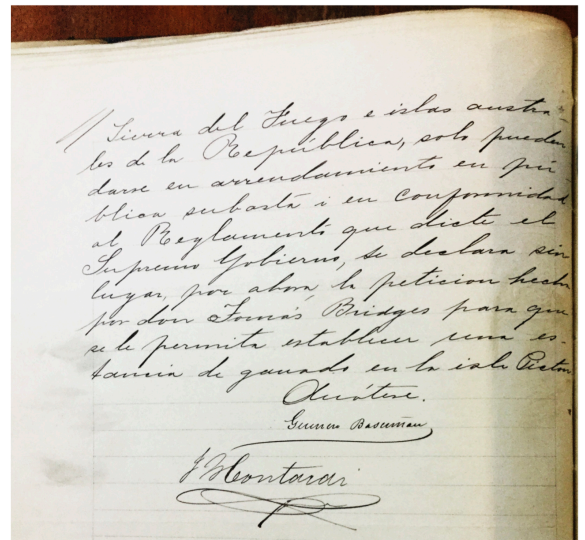 // Tierra del Fuego e islas austra
les de la República, solo pueden
darse en arrendamiento en pú
blica subasta i en conformidad
al Reglamento que dicte el
Supremo Gobierno, se declara sin
lugar, por ahora, la peticion hecha
por don Tomás Bridges para que
se le permita establecer una es-
tancia de ganado en la isla Picton
Anótese.
Guerrero Bascuñan